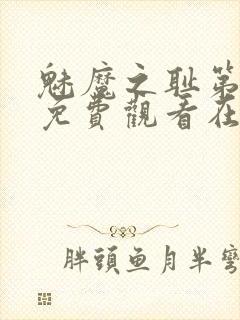 魅魔之耻第
免費觀看在
胖頭鱼月半彎